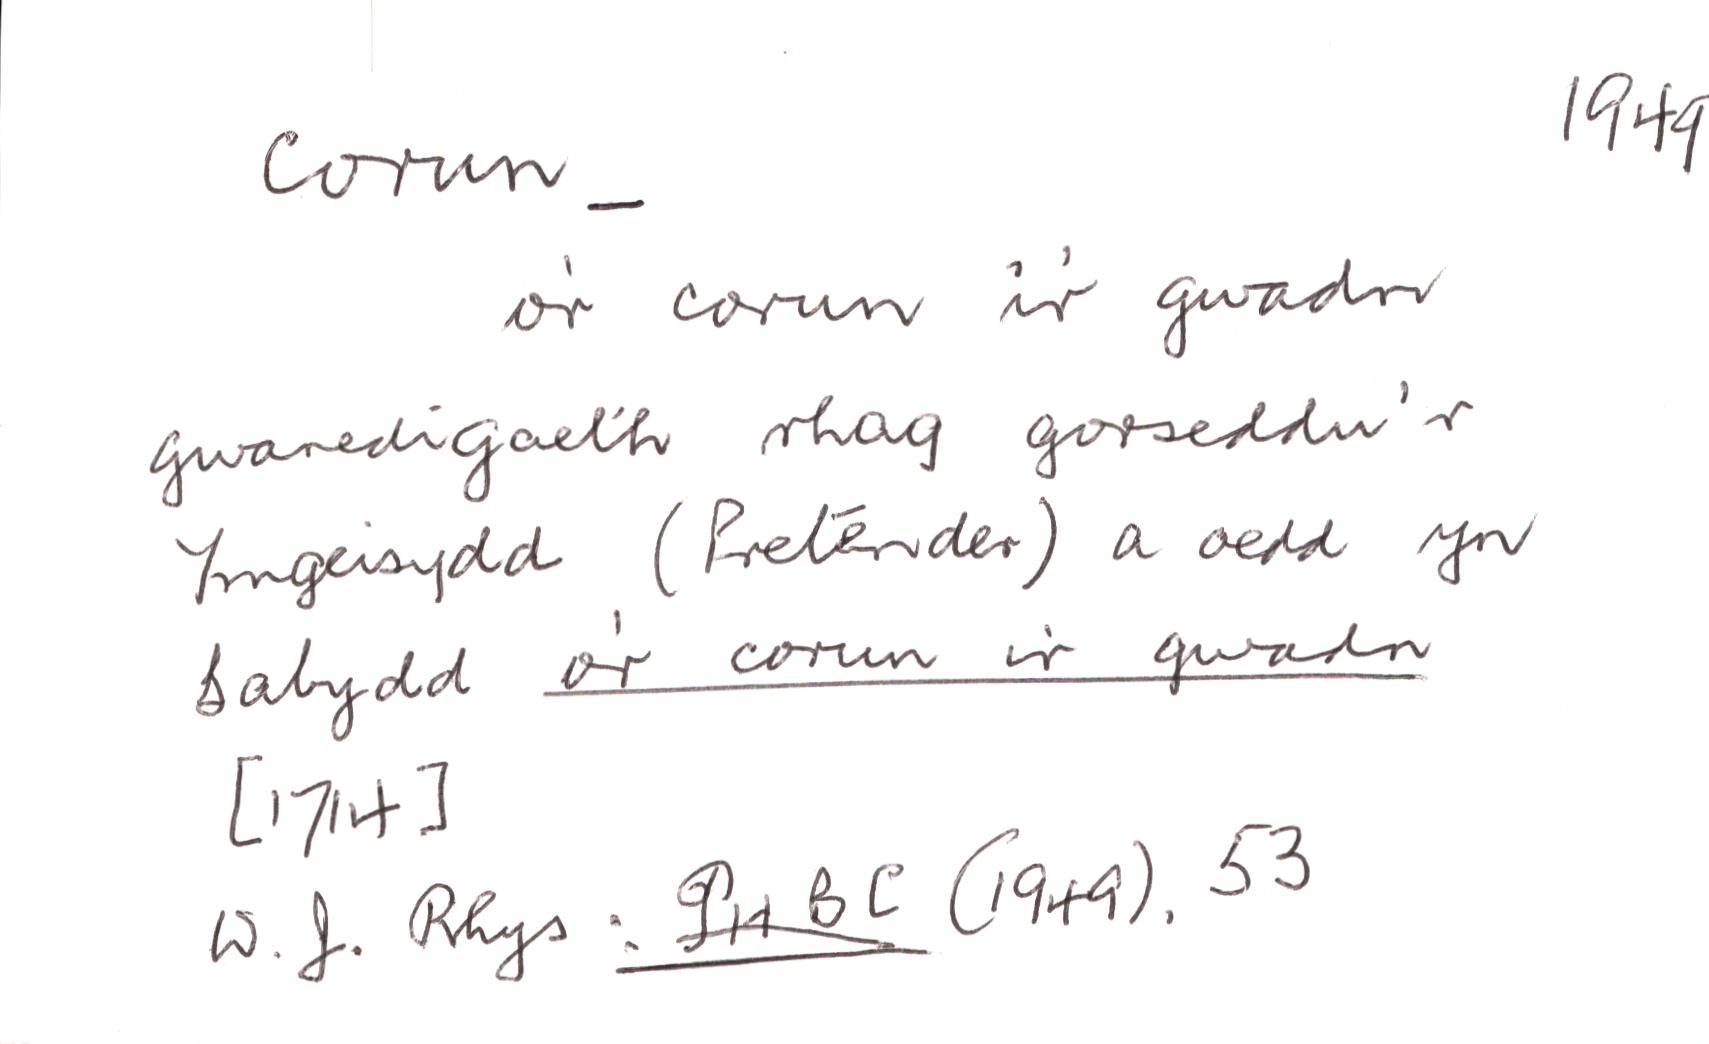 1949
Corun_
o'r corun i'r gwadn
gwaredigaeth rhag gorseddu'r
Ymgeisydd (Pretender) a oedd yn
babydd o'r corun i'r gwadn
[1714]
W. J. Rhys: PHBC (1949), 53